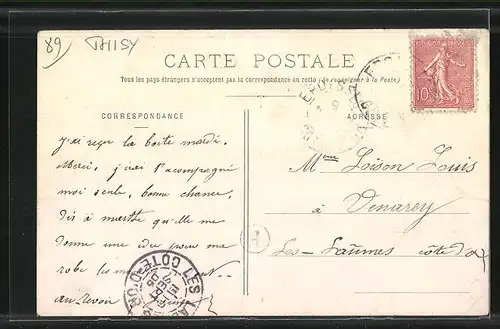 89) THISY
CARTE POSTALE
Tous les pays étrangers n'acceptent pas la correspondance au recto (Se renseigner à la Poste)
CORRESPONDANCE
ADRESSE
J'ai reçu la boite mardi.
Merci, j'irai t'accompagné
moi seule, bonne chance,
Dis à marthe qu'elle me
donne une idée pour ma
robe les
au Revoir
Mme Loison Louis
à Venarey
Les-Laumes côte d'or
10
LES LAUMES COTE-D'OR